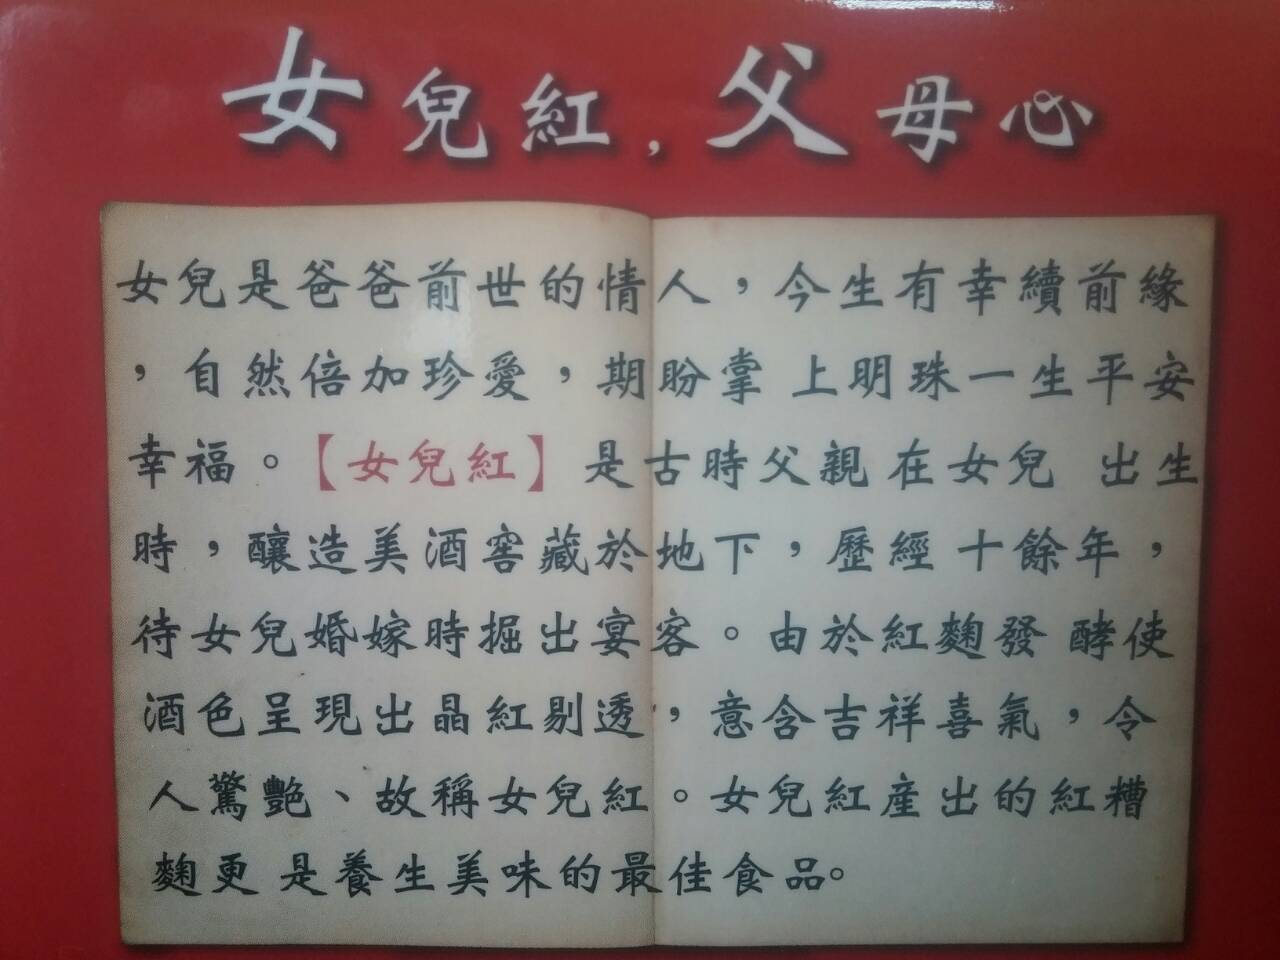 女兒紅，父母心
女兒是爸爸前世的情人，今生有幸續前緣
，自然倍加珍愛，期盼掌上明珠一生平安
幸福。【女兒紅】是古時父親在女兒出生
時，釀造美酒窖藏於地下，歷經十餘年，
待女兒婚嫁時掘出宴客。由於紅麴發酵使
酒色呈現出晶紅剔透，意含吉祥喜氣，令
人驚艷、故稱女兒紅。女兒紅產出的紅糟
麴更是養生美味的最佳食品。